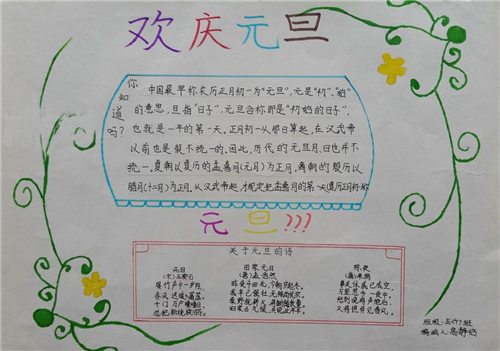 欢庆元旦
你知道吗?
中国最早称农历正月初一为“元旦”,元是“初”、“始”
的意思,旦指“日子”,元旦合称即是“初始的日子”,
也就是一年的第一天。正月初一从那日算起,在汉武帝
以前也是很不统一的。因此,历代的元旦月、日也并不
统一。夏朝以夏历的孟喜月(元月)为正月,商朝的殷历以
腊月(十二月)为正月。从汉武帝起,才规定把孟喜月的第一天
元旦???
关于元旦的诗
元日
(宋)王安石
爆竹声中一岁除,
春风送暖入屠苏。
千门万户曈曈日,
总把新桃换旧符。
田家元日
(唐)孟浩然
昨夜斗回北,今朝岁起东。
我年已强仕,无禄尚忧农。
田家占气候,共说此年丰。
除夜
(唐)来鹄
事关休戚已成空,
万里相思一夜中。
愁到晓鸡声绝后,
又将